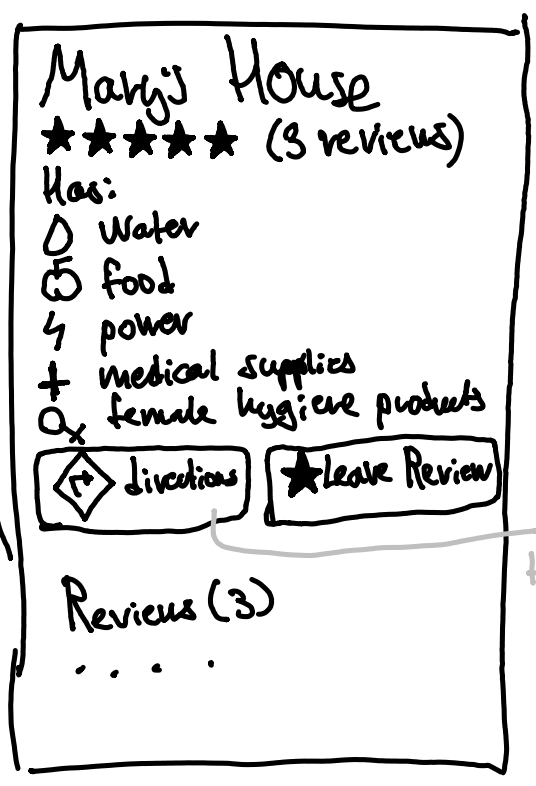 Mary's House
★★★★★ (3 reviews)
Has:
Water
food
power
medical supplies
female hygiene products
directions
★ Leave Review
Reviews (3)
. . . .